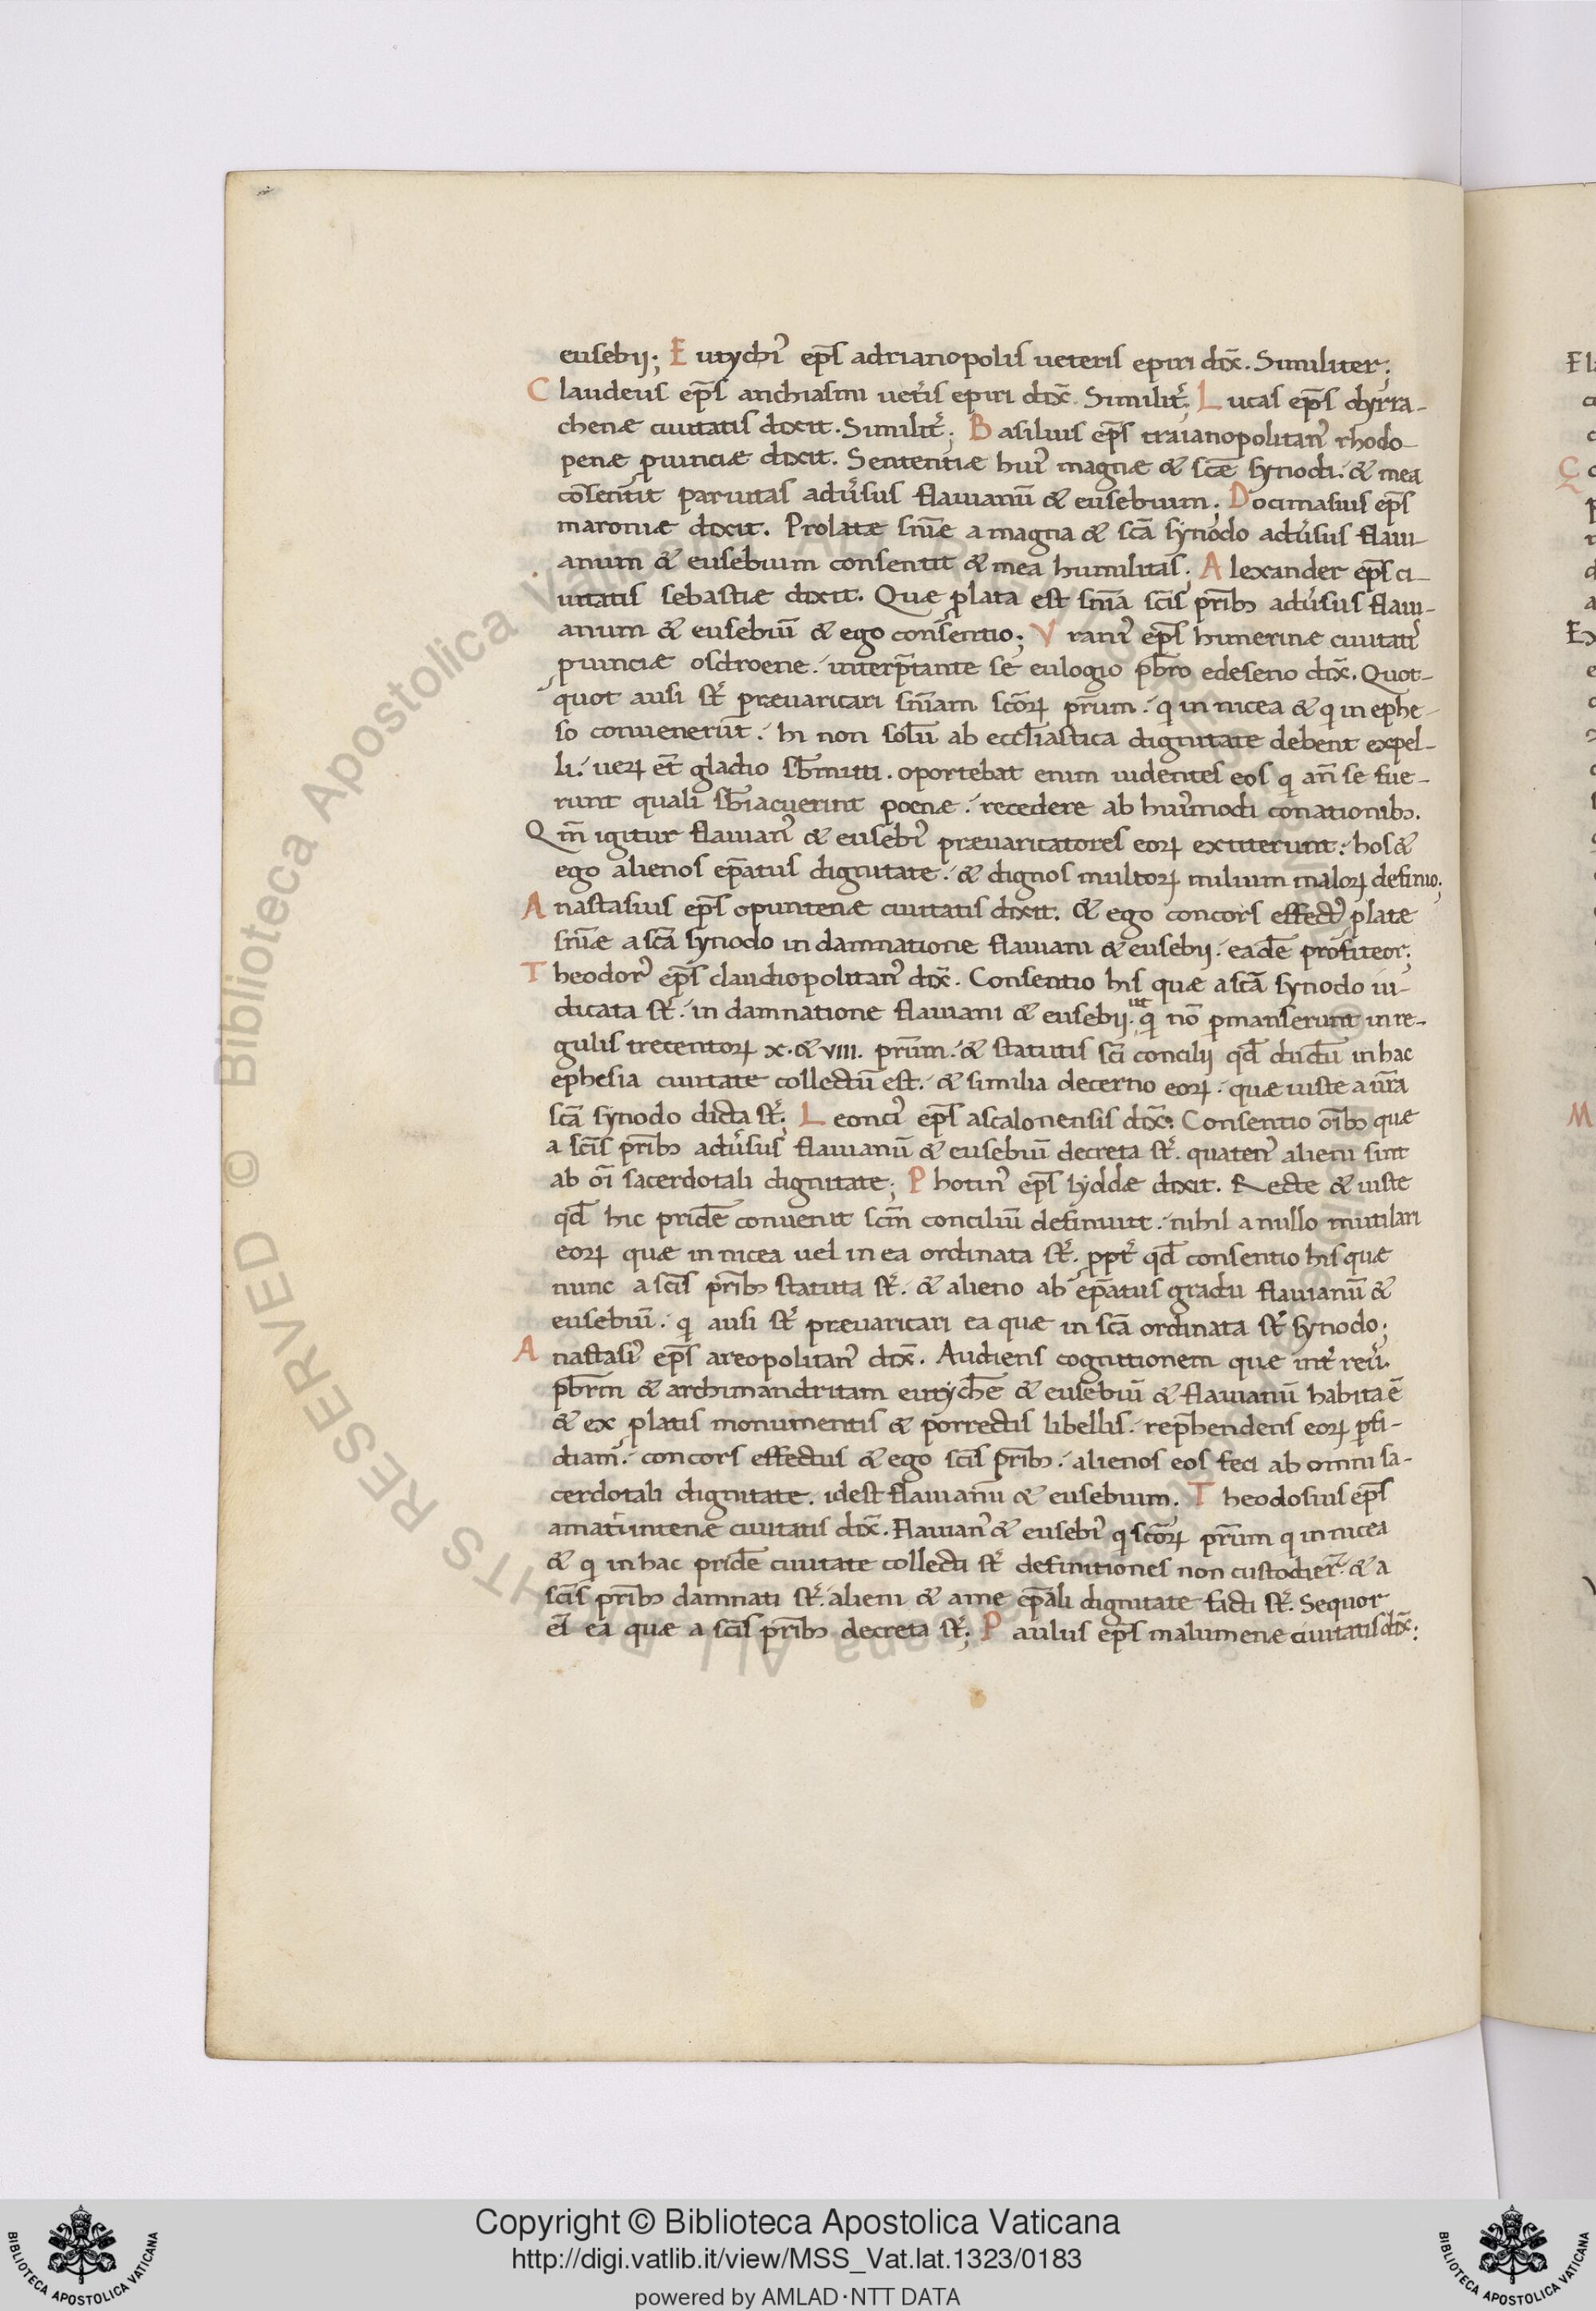 eusebij; Eutychi᾿ ep̄s adrianopolis ueteris epiri dix̄. Similiter;
Claudeus ep̄s anchiasmi uet̓is epiri dix̄. Similit̓; Lucas ep̄s dyrra-
chenæ ciuitatis dixit. Similit̓; Basilius ep̄s traianopolitan᾿ rhodo-
penæ ꝓuinciæ dixit. Sententiæ hui᾿ magnæ & sc̄æ synodi. & mea
cōsentit paruitas adu̓sus flauianū & eusebium; Docimasius ep̄s
maroniæ dixit. Prolatæ sn̄ıæ a magna & sc̄a synodo adu̓sus flaui-
anum & eusebium consentit & mea humilitas; Alexander ep̄s ci-
uitatis sebastiæ dixit. Quæ ꝓlata est sn̄ıa sc̄ıs pr̄ıbꝫ adu̓sus flaui-
anum & eusebiū & ego consentio; Vrani᾿ ep̄s himerinæ ciuitati᾿
ꝓuinciæ osdroene. interp̄tante se eulogio pb̄ro edeseno dix̄. Quot-
quot ausi st̓ præuaricari sn̄ıam sc̄orꝝ pr̄um. q in nicea & q in ephe-
so conuenerūt. hi non solū ab eccl̄iastica dignitate debent expel-
li. uerꝝ et̄ gladio sb̄mitti. oportebat enim uidentes eos q an̄ se fue-
runt quali sb̄iacuerint poenæ. recedere ab hui᾿modi conationibꝫ.
Qm̄ igitur flauian᾿ & eusebi᾿ præuaricatores eorꝝ extiterunt. hos &
ego alienos ep̄atus dignitate. & dignos multorꝝ milium malorꝝ definio;
Anastasius ep̄s opuntenæ ciuitatis dixit. & ego concors effect᾿ ꝓlate
sn̄ıæ a sc̄a synodo in damnatione flauiani & eusebij. eadē profiteor;
Theodor᾿ ep̄s claudiopolitan᾿ dix̄. Consentio his quæ a sc̄a synodo iu-
dicata st̓. in damnatione flauiani & eusebij. q nō ꝑmanserunt in re-
gulis trecentorꝝ x. & VIII. pr̄um. & statutis sc̄ı concilij qd̄ dudū in hac
ephesia ciuitate collectū est. & similia decerno eorꝝ. quæ iuste a ur̄a
sc̄a synodo dicta st̓; Leonci᾿ ep̄s ascalonensis dix̄. Consentio oībꝫ que
a sc̄ıs pr̄ıbꝫ adu̓sus flauianū & eusebiū decreta st̓. quaten᾿ alieni sint
ab oı̄ sacerdotali dignitate; Photin᾿ ep̄s lyddæ dixit. Recte & iuste
qd̄ hic pridē conuenit scm̄ conciliū definiuit. nihil a nullo mutilari
eorꝝ quæ in nicea uel in ea ordinata st̓. ꝓpt̓ qd̄ consentio his quæ
nunc a sc̄ıs pr̄ıbꝫ statuta st̓. & alieno ab ep̄atus gradu flauianū &
eusebiū. q ausi st̓ præuaricari ea quæ in sc̄a ordinata st̓ synodo;
Anastasi᾿ ep̄s areopolitan᾿ dix̄. Audiens cognitionem que int̓ reu̓.
pb̄rm & archimandritam eutychē & eusebiū & flauianū habita ē
& ex ꝓlatis monumentis & porrectis libellis. rep̄hendens eorꝝ ꝑfi-
diam. concors effectus & ego sc̄ıs pr̄ıbꝫ. alienos eos feci ab omni sa-
cerdotali dignitate. idest flauianū & eusebium. Theodosius ep̄s
amatuntenæ ciuitatis dix̄. Flauian᾿ & eusebi᾿ q sc̄orꝝ pr̄um q in nicea
& q in hac pridē ciuitate collecti st̓ definitiones non custodier̄. & a
sc̄ıs pr̄ıbꝫ damnati st̓. alieni & a me ep̄ali dignitate facti st̓. Sequor
et̄ ea quæ a sc̄ıs pr̄ıbꝫ decreta st̓; Paulus ep̄s malumenæ ciuitatis dix̄;
© Biblioteca Apostolica Vaticana ALL RIGHTS RESERVED
Copyright © Biblioteca Apostolica Vaticana
http://digi.vatlib.it/view/MSS_Vat.lat.1323/0183
powered by AMLAD·NTT DATA
BIBLIOTECA APOSTOLICA VATICANA
BIBLIOTECA APOSTOLICA VATICANA